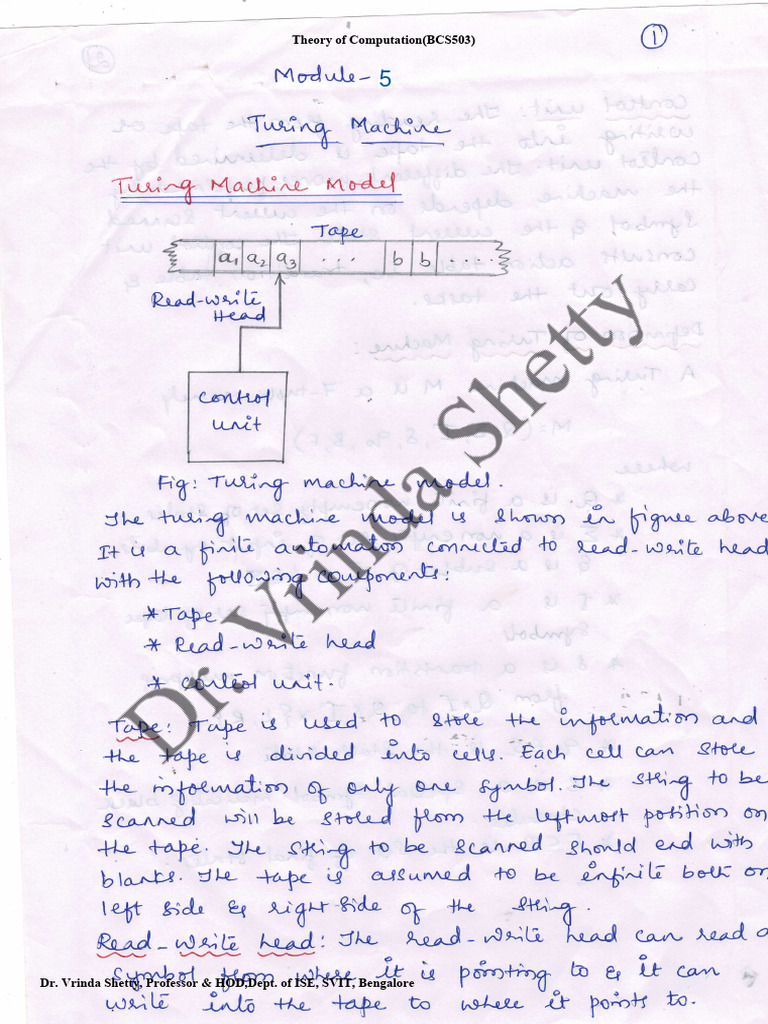 Theory of Computation(BCS503)
1
Module-5
Turing Machine
Turing Machine Model
Tape
a1 a2 a3 ... b b ....
Read-write
Head
control
unit
Fig: Turing machine model.
The turing machine model is shown in figure above
It is a finite automaton connected to read-write head
with the following components:
* Tape
* Read-write head
* control unit.
Tape: Tape is used to store the information and
the tape is divided into cells. Each cell can store
the information of only one symbol. The string to be
scanned will be stored from the leftmost position on
the tape. The string to be scanned should end with
blanks. The tape is assumed to be infinite both on
left side & right side of the string.
Read-write head: The read-write head can read a
symbol from where it is pointing to & it can
Dr. Vrinda Shetty, Professor & HOD,Dept. of ISE, SVIT, Bengalore
write into the tape to where it points to.
Dr. Vrinda Shetty